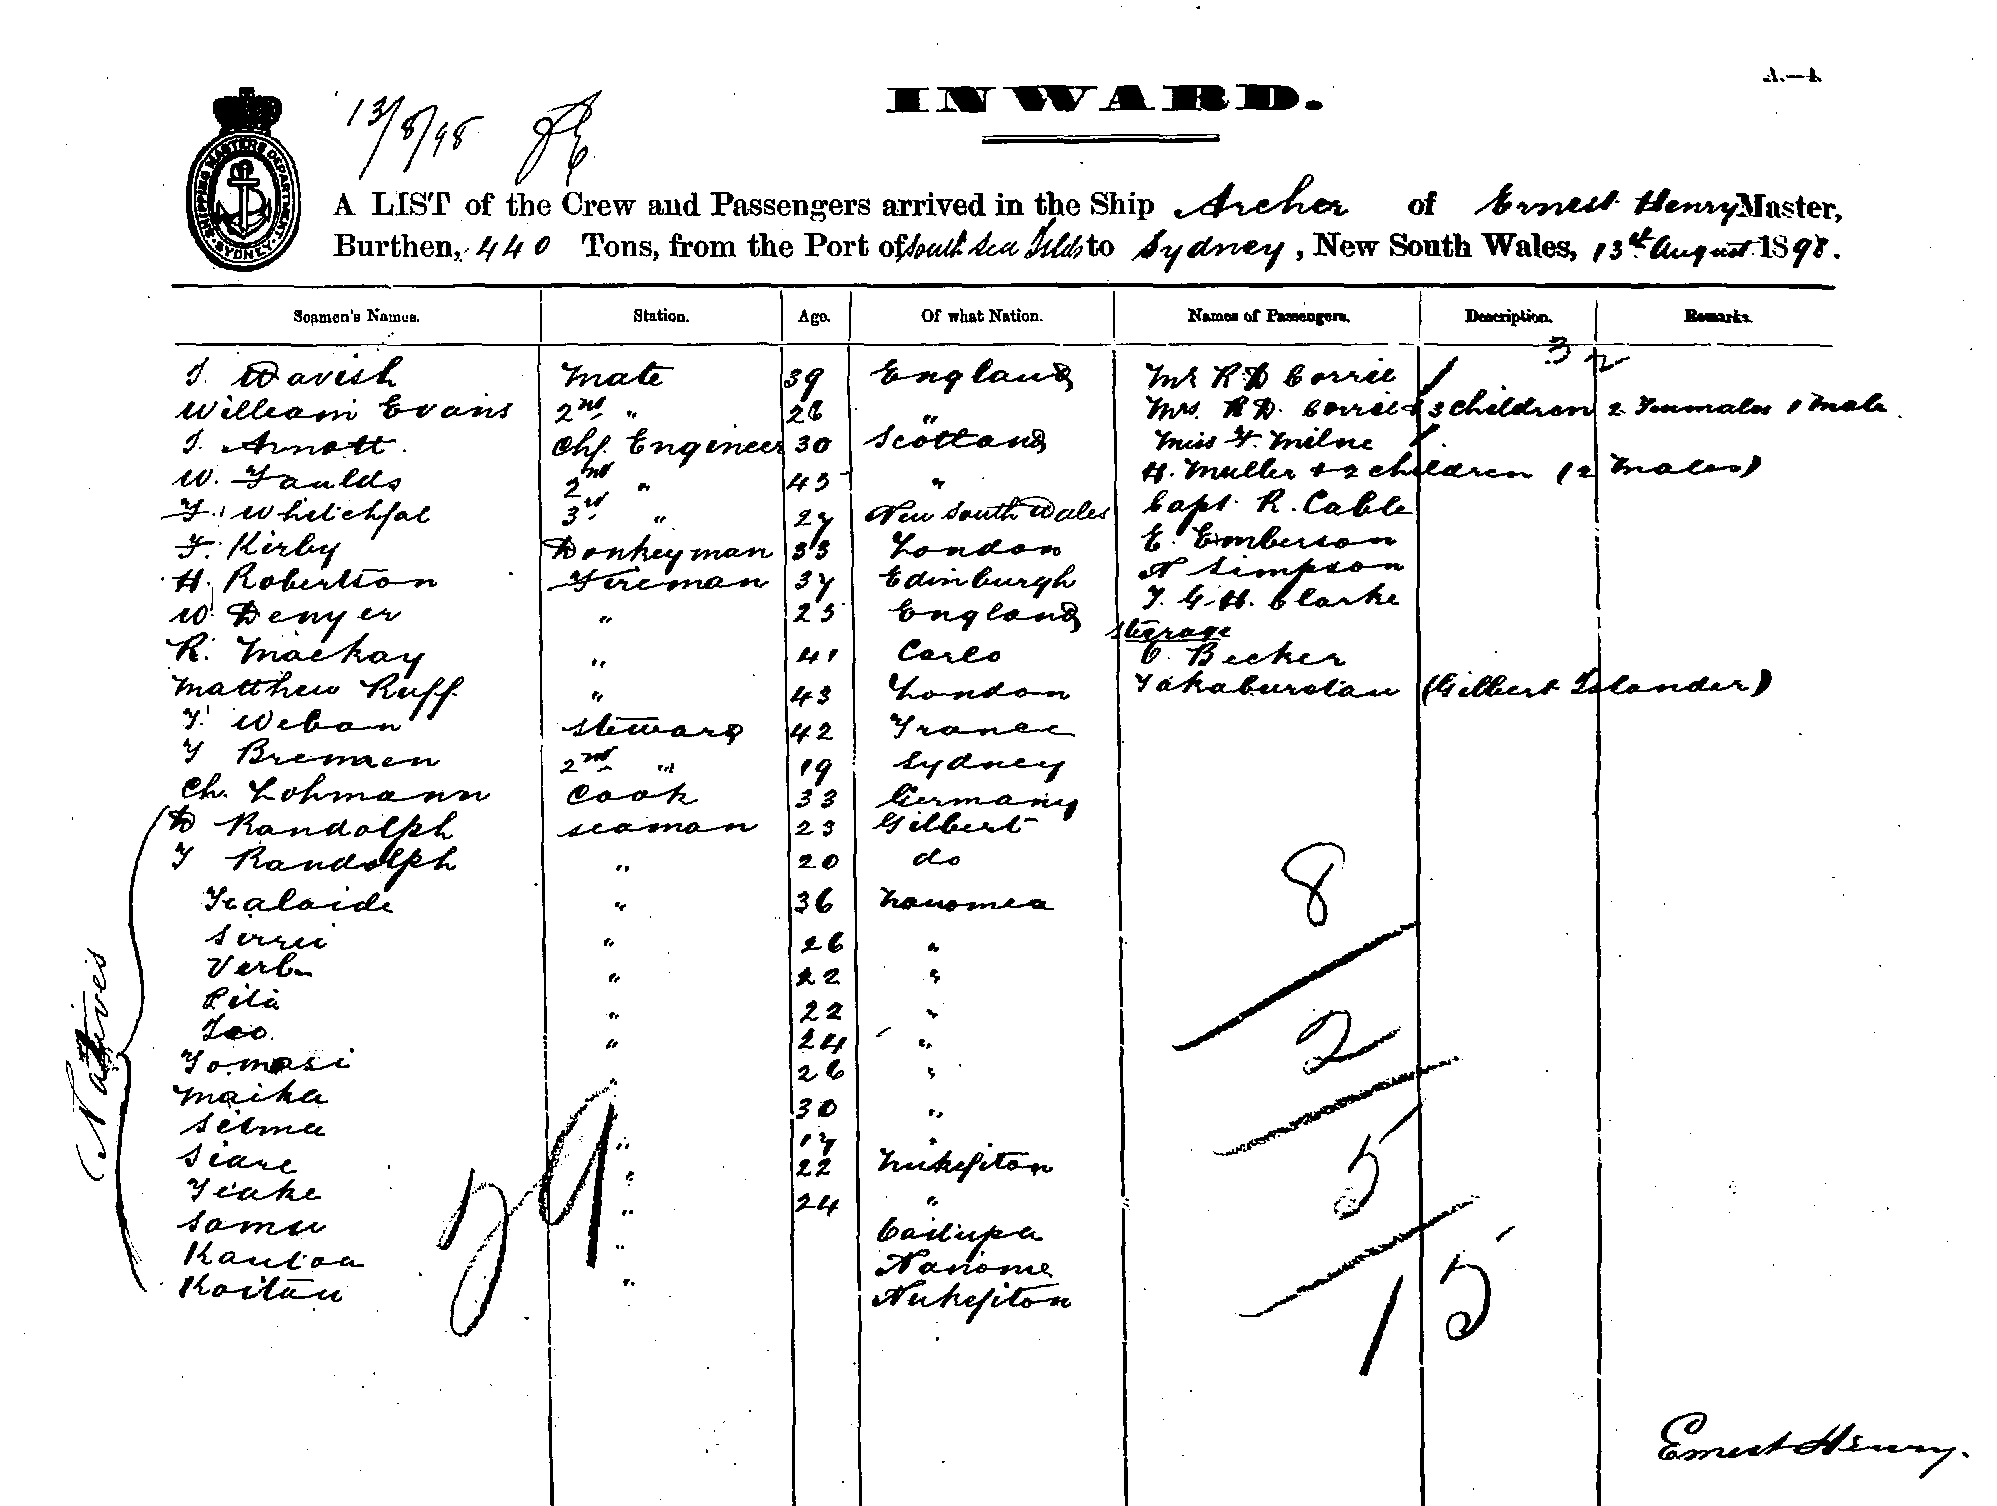 A.—4.
INWARD.
13/8/98
SHIPPING MASTERS DEPARTMENT SYDNEY
A LIST of the Crew and Passengers arrived in the Ship Archer of Ernest Henry Master,
Burthen, 440 Tons, from the Port of South Sea Islds to Sydney, New South Wales, 13th August 1898.
Seamen's Names. Station. Age. Of what Nation. Names of Passengers. Description. Remarks.
3 2
J. Davish Mate 39 England Mr R D Corrie
William Evans 2nd " 26 " Mrs. R D. Corrie & 3 children 2 Feumales 1 male
J. Arnott. Chf. Engineer 30 Scotland Miss F. Milne
W. Faulds 2nd " 45 " H. Muller & 2 children (2 males)
F. 3rd " 27 New South Wales Capt. R. Cable
F. Kirby Donkeyman 33 London E. Emberson
H. Robertson Fireman 37 Edinburgh A Simpson
W. Denyer " 25 England T. G. H. Clarke
sterage
R. Mackay " 41 C. Becker
Matthew Ruff " 43 London (Gilbert Islander)
Steward 42 France
Bremnen 2nd " 19 Sydney
Ch. Lohmann Cook 33 Germany
D Randolph seaman 23 Gilbert
J Randolph " 20 do
" 36
" 26 "
" 22 "
Pita " 22 "
" 24 "
Tomasi " 26 "
Maika 30 "
Selma " 17 "
Siare " 22 Nukefitou
Teake " 24 "
Samu "
Kautoa " Nanome
Koitau Nukefiton
Natives
29
8
2
5
15
Ernest Henry.